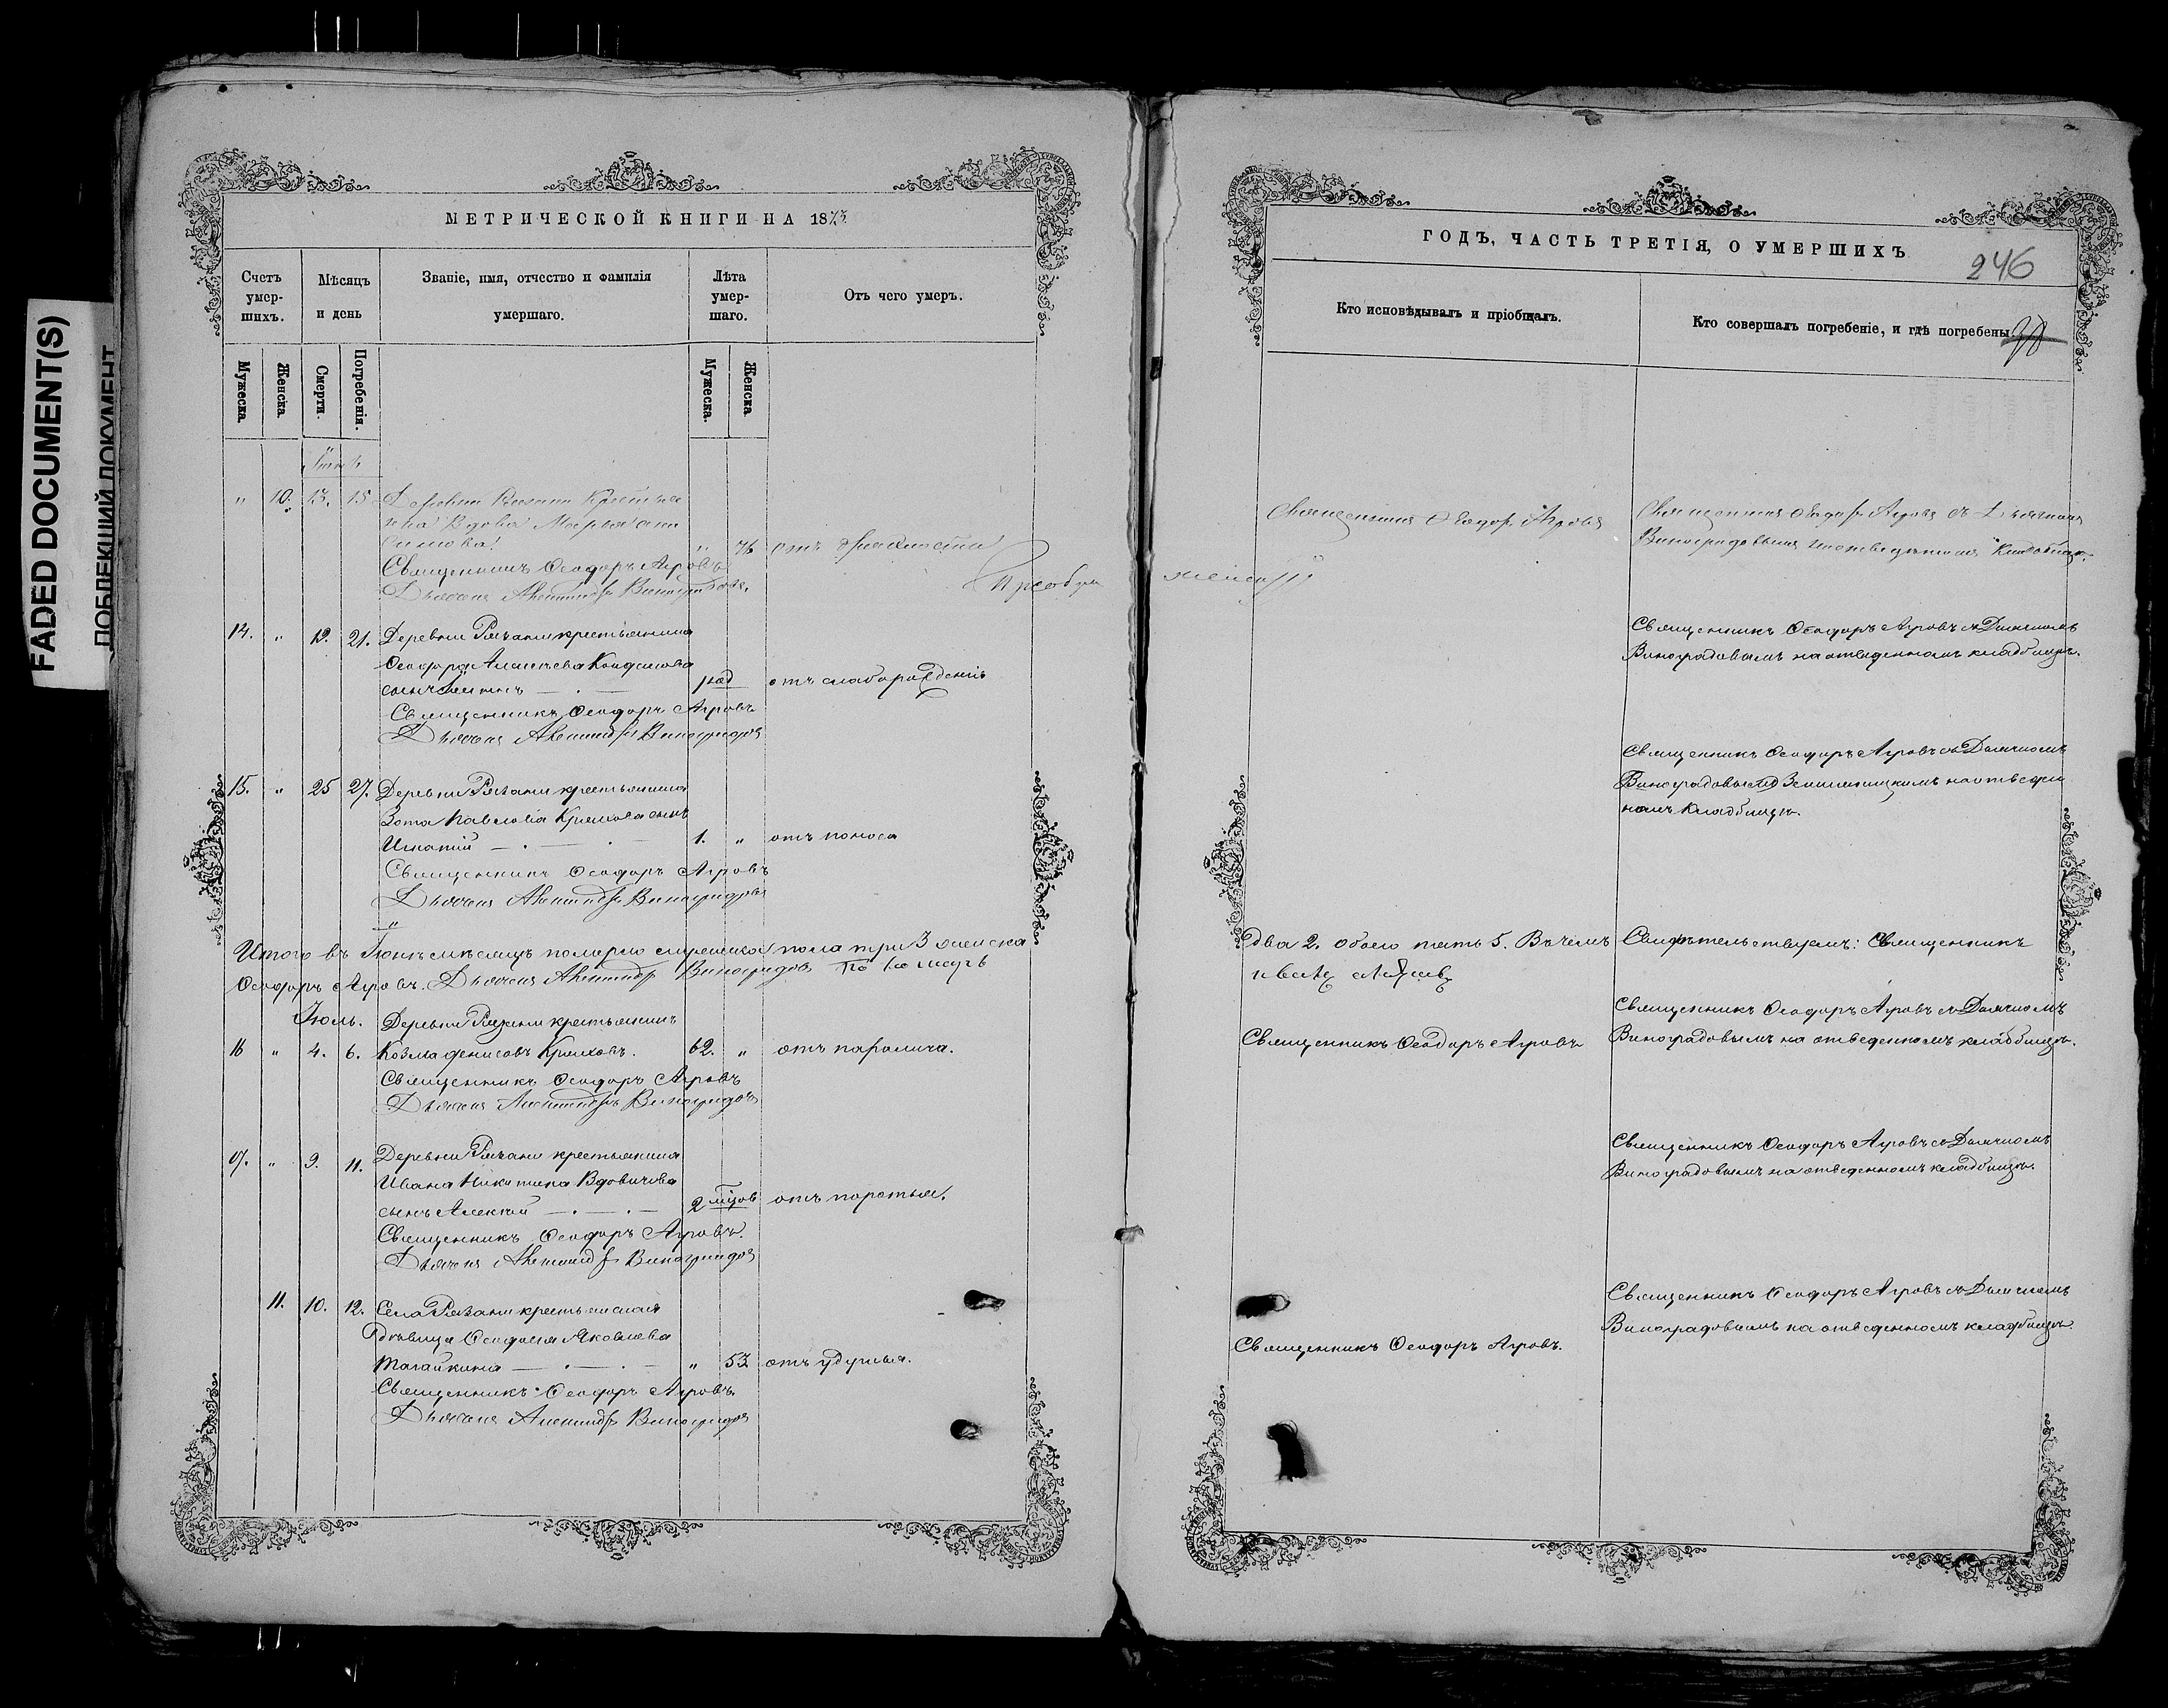 FADED DOCUMENT(S)
ПОБЛЕКШИЙ ДОКУМЕНТ
МЕТРИЧЕСКОЙ КНИГИ НА 1873
Счетъ умер-шихъ.
Мѣсяцъ и день
Званіе, имя, отчество и фамилія умершаго.
Лѣта умер-шаго.
Отъ чего умеръ.
Мужеска.
Женска.
Смерти.
Погребенія.
Мужеска.
Женска
" 10. 13. 15 Деревни Рязани крестьян
ская вдова Марья
" 76
Священникъ Ѳеодоръ Агровъ
Дьячекъ Александръ Виноградовъ.
14. " 19. 21. Деревни Рязани крестьянина
Ѳеодора Алексѣева
сынъ
отъ слаборожденія
Священникъ Ѳеодоръ Агровъ
Дьячекъ Александръ Виноградовъ
15. " 25 27. Деревни Рязани крестьянина
Зота Павлова Крылова сынъ
Игнатій 1. " отъ поноса
Священникъ Ѳеодоръ Агровъ
Дьячекъ Александръ Виноградовъ
Итого въ Іюнѣ мѣсяцѣ померло мужеска пола три 3 женска
Ѳеодоръ Агровъ. Дьячекъ Александръ Виноградовъ
Іюль. Деревни Рязани крестьянинъ
16 " 4. 6. Козма Денисовъ Крыловъ. 62. " отъ паралича.
Священникъ Ѳеодоръ Агровъ
Дьячекъ Александръ Виноградовъ
17. " 9. 11. Деревни Рязани крестьянина
Ивана Никитина Вдовичева
сынъ Алексій 2 мѣсяцов
Священникъ Ѳеодоръ Агровъ.
Дьячекъ Александръ Виноградовъ
11. 10. 12. Села Рязани крестьянская
дѣвица Ѳеодосія Яковлева
" 53 отъ удушья.
Священникъ Ѳеодоръ Агровъ.
Дьячекъ Александръ Виноградовъ
ГОДЪ, ЧАСТЬ ТРЕТІЯ, О УМЕРШИХЪ
246
Кто исповѣдывалъ и пріобщалъ.
Кто совершалъ погребеніе, и гдѣ погребены.
Священникъ Ѳеодоръ Агровъ
Священникъ Ѳеодоръ Агровъ съ Дьячкомъ
Виноградовымъ на отведенномъ кладбищѣ.
Священникъ Ѳеодоръ Агровъ съ Дьячкомъ
Виноградовымъ на отведенномъ кладбищѣ.
Священникъ Ѳеодоръ Агровъ съ Дьячкомъ
Виноградовымъ на отведен
номъ кладбищѣ.
два 2. обоего пять 5. Въ чемъ Свидѣтельствуемъ: Священникъ
Священникъ Ѳеодоръ Агровъ
Священникъ Ѳеодоръ Агровъ съ Дьячкомъ
Виноградовымъ на отведенномъ кладбищѣ.
Священникъ Ѳеодоръ Агровъ съ Дьячкомъ
Виноградовымъ на отведенномъ кладбищѣ.
Священникъ Ѳеодоръ Агровъ.
Священникъ Ѳеодоръ Агровъ съ Дьячкомъ
Виноградовымъ на отведенномъ кладбищѣ.